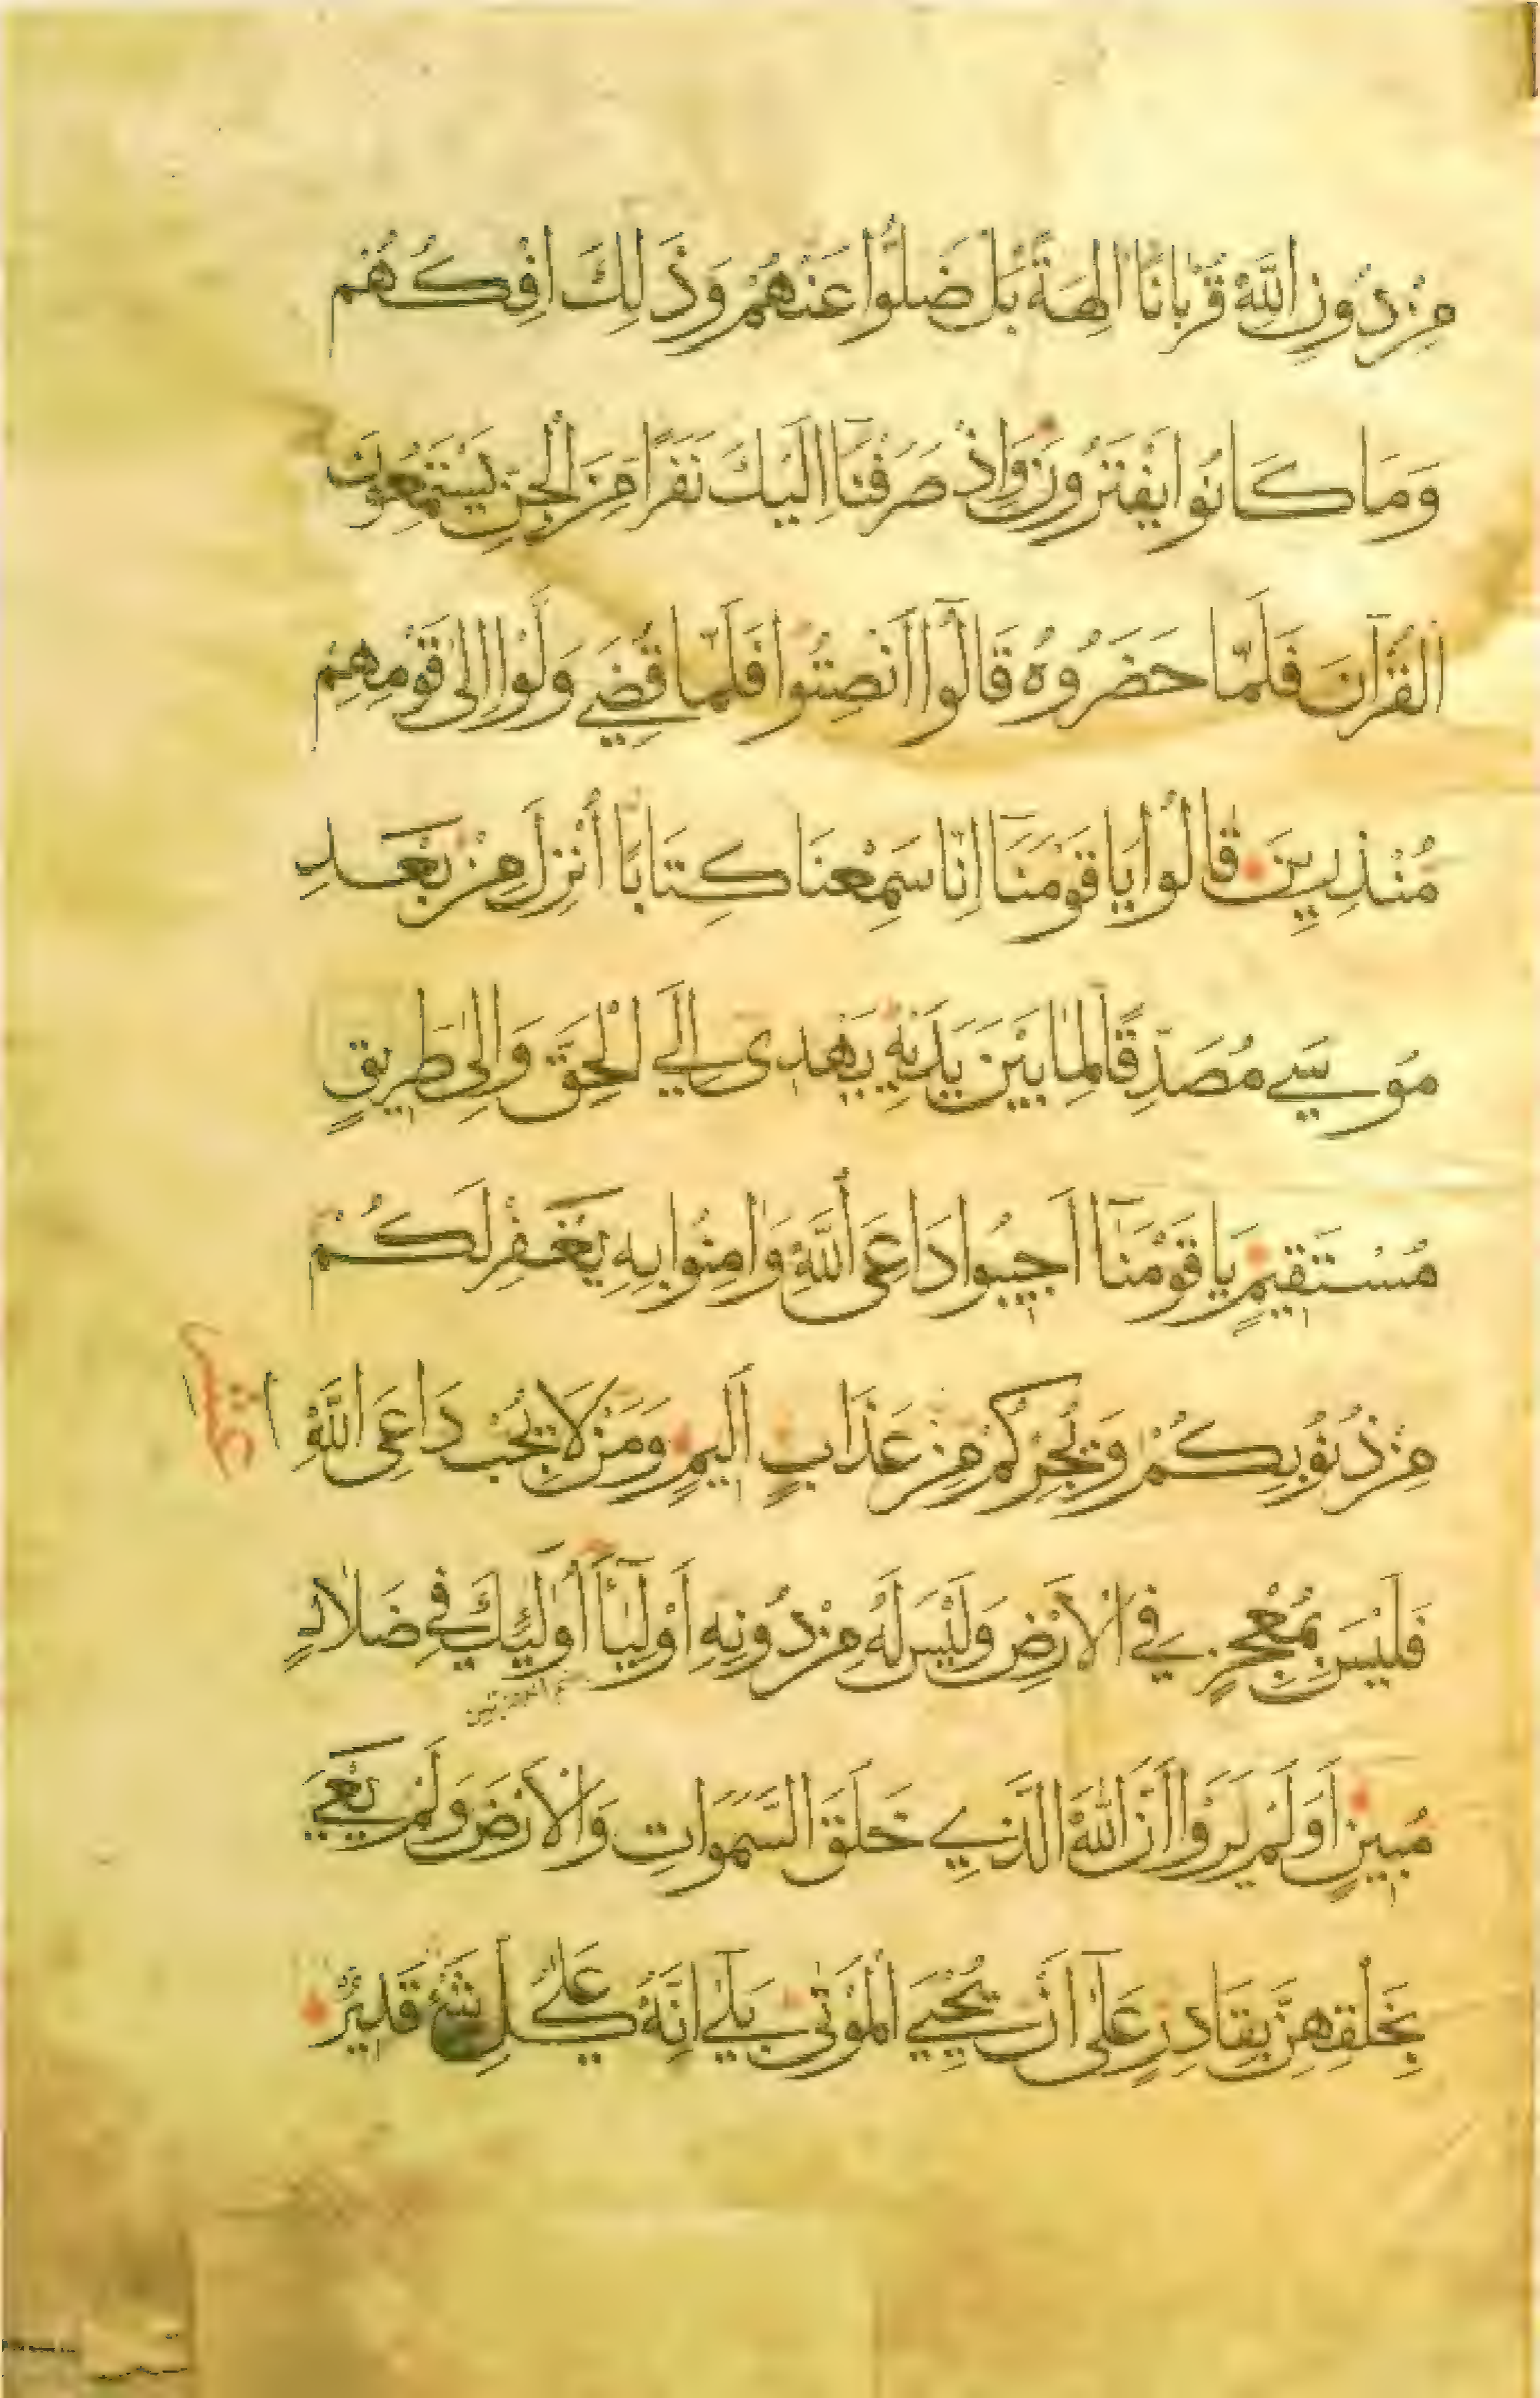 مِنْ دُونِ اللَّهِ قُرْبَانًا اٰلِهَةً بَلْ ضَلُّوا عَنْهُمْ وَذَلِكَ اِفْكُهُمْ
وَمَا كَانُوا يَفْتَرُونَ وَاِذْ صَرَفْنَآ اِلَيْكَ نَفَرًا مِنَ الْجِنِّ يَسْتَمِعُونَ
الْقُرْآنَ فَلَمَّا حَضَرُوهُ قَالُوٓا اَنْصِتُوا فَلَمَّا قُضِيَ وَلَّوْا اِلٰى قَوْمِهِمْ
مُنْذِرِينَ قَالُوا يَا قَوْمَنَآ اِنَّا سَمِعْنَا كِتَابًا أُنْزِلَ مِنْ بَعْدِ
مُوسَي مُصَدِّقًا لِمَا بَيْنَ يَدَيْهِ يَهْدِى اِلَي الْحَقِّ وَاِلٰى طَرِيقٍ
مُسْتَقِيمٍ يَا قَوْمَنَآ اَجِيبُوا دَاعِىَ اللَّهِ وَاٰمِنُوا بِهِ يَغْفِرْ لَكُمْ
مِنْ ذُنُوبِكُمْ وَيُجِرْكُمْ مِنْ عَذَابٍ اَلِيمٍ وَمَنْ لَا يُجِبْ دَاعِىَ اللَّهِ
فَلَيْسَ بِمُعْجِزٍ فِي الْاَرْضِ وَلَيْسَ لَهُ مِنْ دُونِهِ اَوْلِيَآءُ أُولٰٓئِكَ فِي ضَلَالٍ
مُبِينٍ اَوَلَمْ يَرَوْا اَنَّ اللَّهَ الَّذِي خَلَقَ السَّمَوَاتِ وَالْاَرْضَ وَلَمْ يَعْيَ
بِخَلْقِهِنَّ بِقَادِرٍ عَلٰٓى اَنْ يُحْيِيَ الْمَوْتٰى بَلٰٓي اِنَّهُ عَلٰي كُلِّ شَيْءٍ قَدِيرٌ